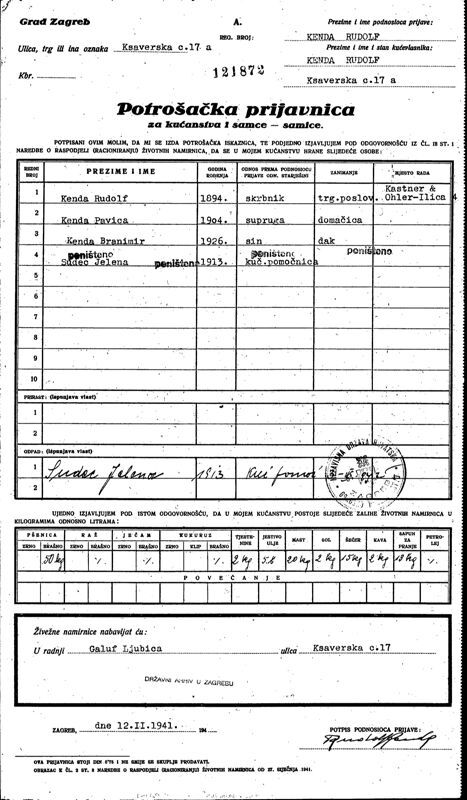 Grad Zagreb
A.
Prezime i ime podnosioca prijave:
REG. BROJ:
KENDA RUDOLF
Ulica, trg ili ina oznaka Ksaverska c.17 a
Prezime i ime i stan kućevlasnika:
KENDA RUDOLF
Kbr.
121872
Ksaverska c.17 a
Potrošačka prijavnica
za kućanstva i samce — samice.
POTPISANI OVIM MOLIM, DA MI SE IZDA POTROŠAČKA ISKAZNICA, TE PODJEDNO IZJAVLJUJEM POD ODGOVORNOŠĆU IZ ČL. 18 ST. 1
NAREDBE O RASPODJELI (RACIONIRANJU) ŽIVOTNIH NAMIRNICA, DA SE U MOJEM KUĆANSTVU HRANE SLIJEDEĆE OSOBE:
REDNI BROJ PREZIME I IME GODINA ROĐENJA ODNOS PREMA PODNOSIOCU PRIJAVE ODN. STARJEŠINI ZANIMANJE MJESTO RADA
1 Kenda Rudolf 1894. skrbnik trg.poslov. Kastner & Ohler-Ilica 4
2 Kenda Pavica 1904. supruga domaćica
3 Kenda Branimir 1926. sin đak
4 poništeno poništeno poništeno
Sudec Jelena poništeno 1913. kuć.pomoćnica
5
6
7
8
9
10
PRIRAST: (Ispunjava vlast)
1
2
OTPAD: (Ispunjava vlast)
1 Sudec Jelena 1913 kuć. pomoć
2
NEZAVISNA DRŽAVA HRVATSKA
UJEDNO IZJAVLJUJEM POD ISTOM ODGOVORNOŠĆU, DA U MOJEM KUĆANSTVU POSTOJE SLIJEDEĆE ZALIHE ŽIVOTNIH NAMIRNICA U
KILOGRAMIMA ODNOSNO LITRAMA:
PŠENICA RAŽ JEČAM KUKURUZ TJESTENINE JESTIVO ULJE MAST SOL ŠEĆER KAVA SAPUN ZA PRANJE PETROLEJ
ZRNO BRAŠNO ZRNO BRAŠNO ZRNO BRAŠNO ZRNO KLIP BRAŠNO
50 kg ·/. ·/. ·/. 2 kg 5 l 20 kg 2 kg 15 kg 2 kg ·/.
POVEĆANJE
Živežne namirnice nabavljat ću:
U radnji Galuf Ljubica ulica Ksaverska c.17
DRŽAVNI ARHIV U ZAGREBU
ZAGREB, dne 12.II.1941. 194
POTPIS PODNOSIOCA PRIJAVE:
OVA PRIJAVNICA STOJI DIN 0'75 I NE SMIJE SE SKUPLJE PRODAVATI.
OBRAZAC K ČL. 3 ST. 2 NAREDBE O RASPODJELI (RACIONIRANJU) ŽIVOTNIH NAMIRNICA OD 27. SIJEČNJA 1941.